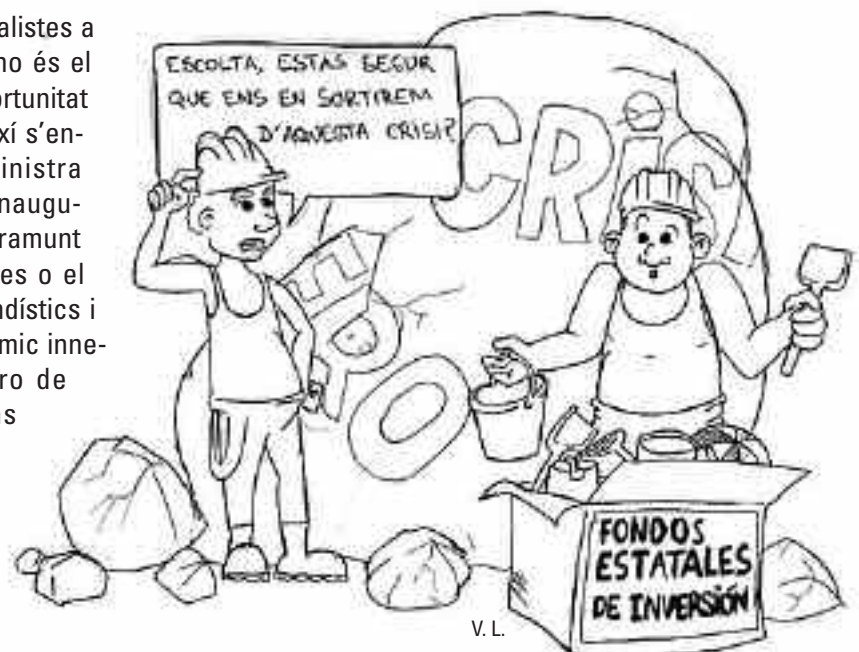 alistes a
no és el
ortunitat
xí s'en-
inistra
naugu-
ramunt
es o el
ndístics i
mic inne-
ro de
ns
ESCOLTA, ESTAS SEGUR
QUE ENS EN SORTIREM
D'AQUESTA CRISI?
CRiS
FONDOS
ESTATALES
DE INVERSIÓN
V. L.